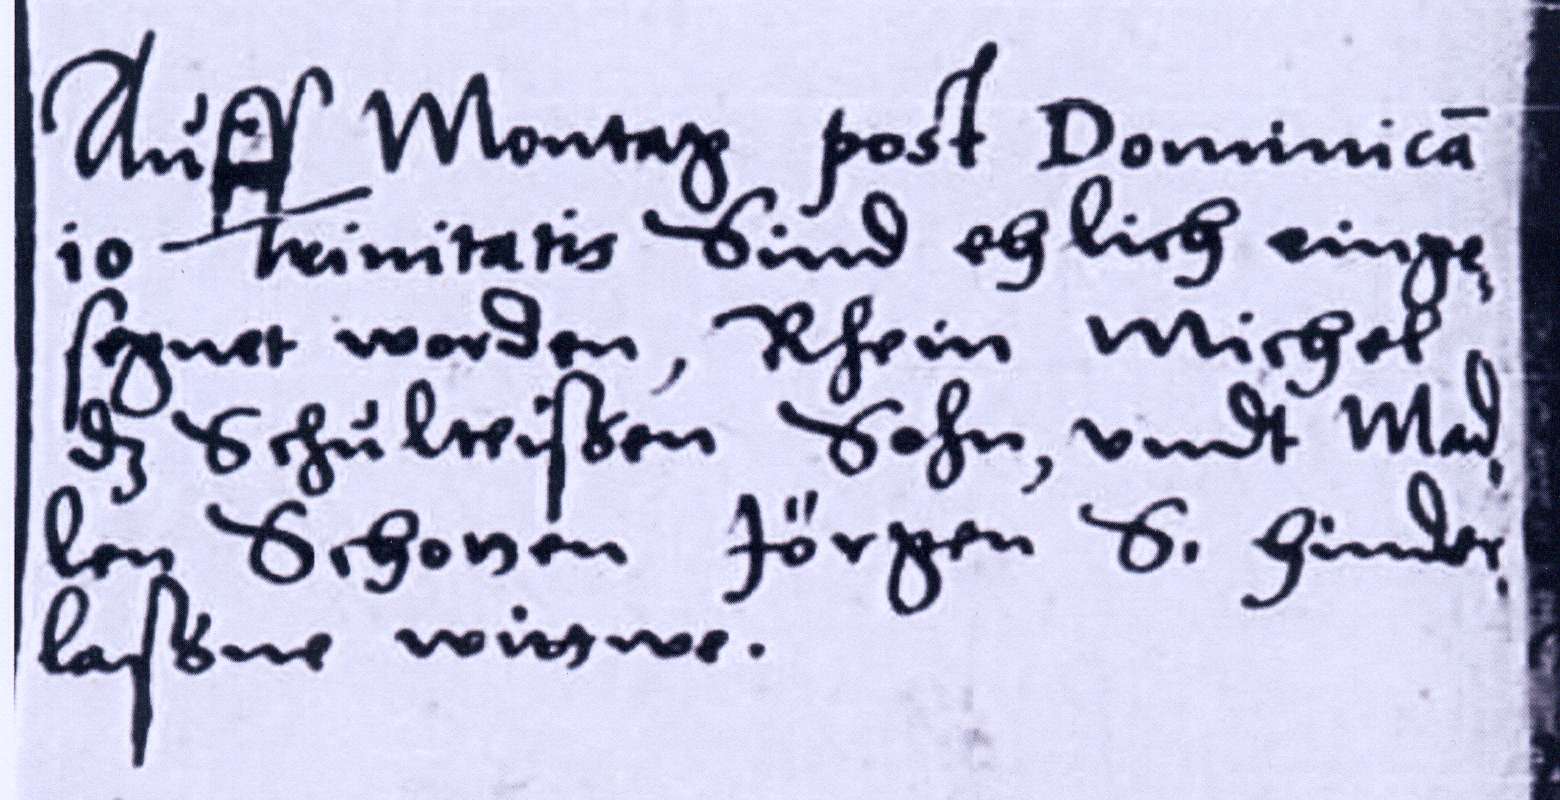 Auff Montag post Dominicā
10 Trinitatis Sind ehlich einge,
segnet worden, Rhein Michel
dz Schulteißen Sohn, vndt Mad,
len Schonen Jörgen S. hinder,
laßne witwe.